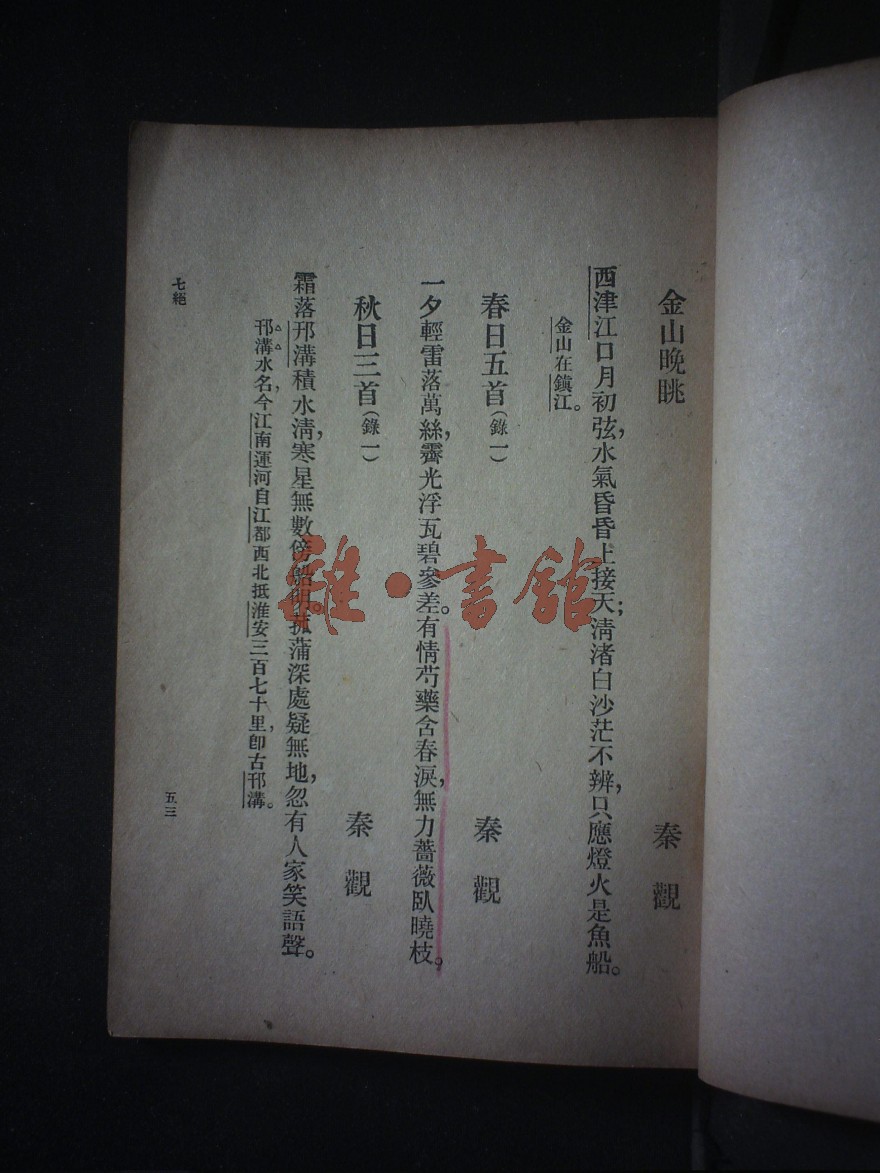 金山晚眺 秦觀
西津江口月初弦，水氣昏昏上接天；淸渚白沙茫不辨，只應燈火是魚船。
金山在鎭江。
春日五首（錄一） 秦觀
一夕輕雷落萬絲，霽光浮瓦碧參差。有情芍藥含春淚，無力薔薇臥曉枝。
秋日三首（錄一） 秦觀
霜落邗溝積水淸，寒星無數傍船明。菰蒲深處疑無地，忽有人家笑語聲。
邗溝水名，今江南運河自江都西北抵淮安三百七十里，卽古邗溝。
七絕 五三
雜·書館